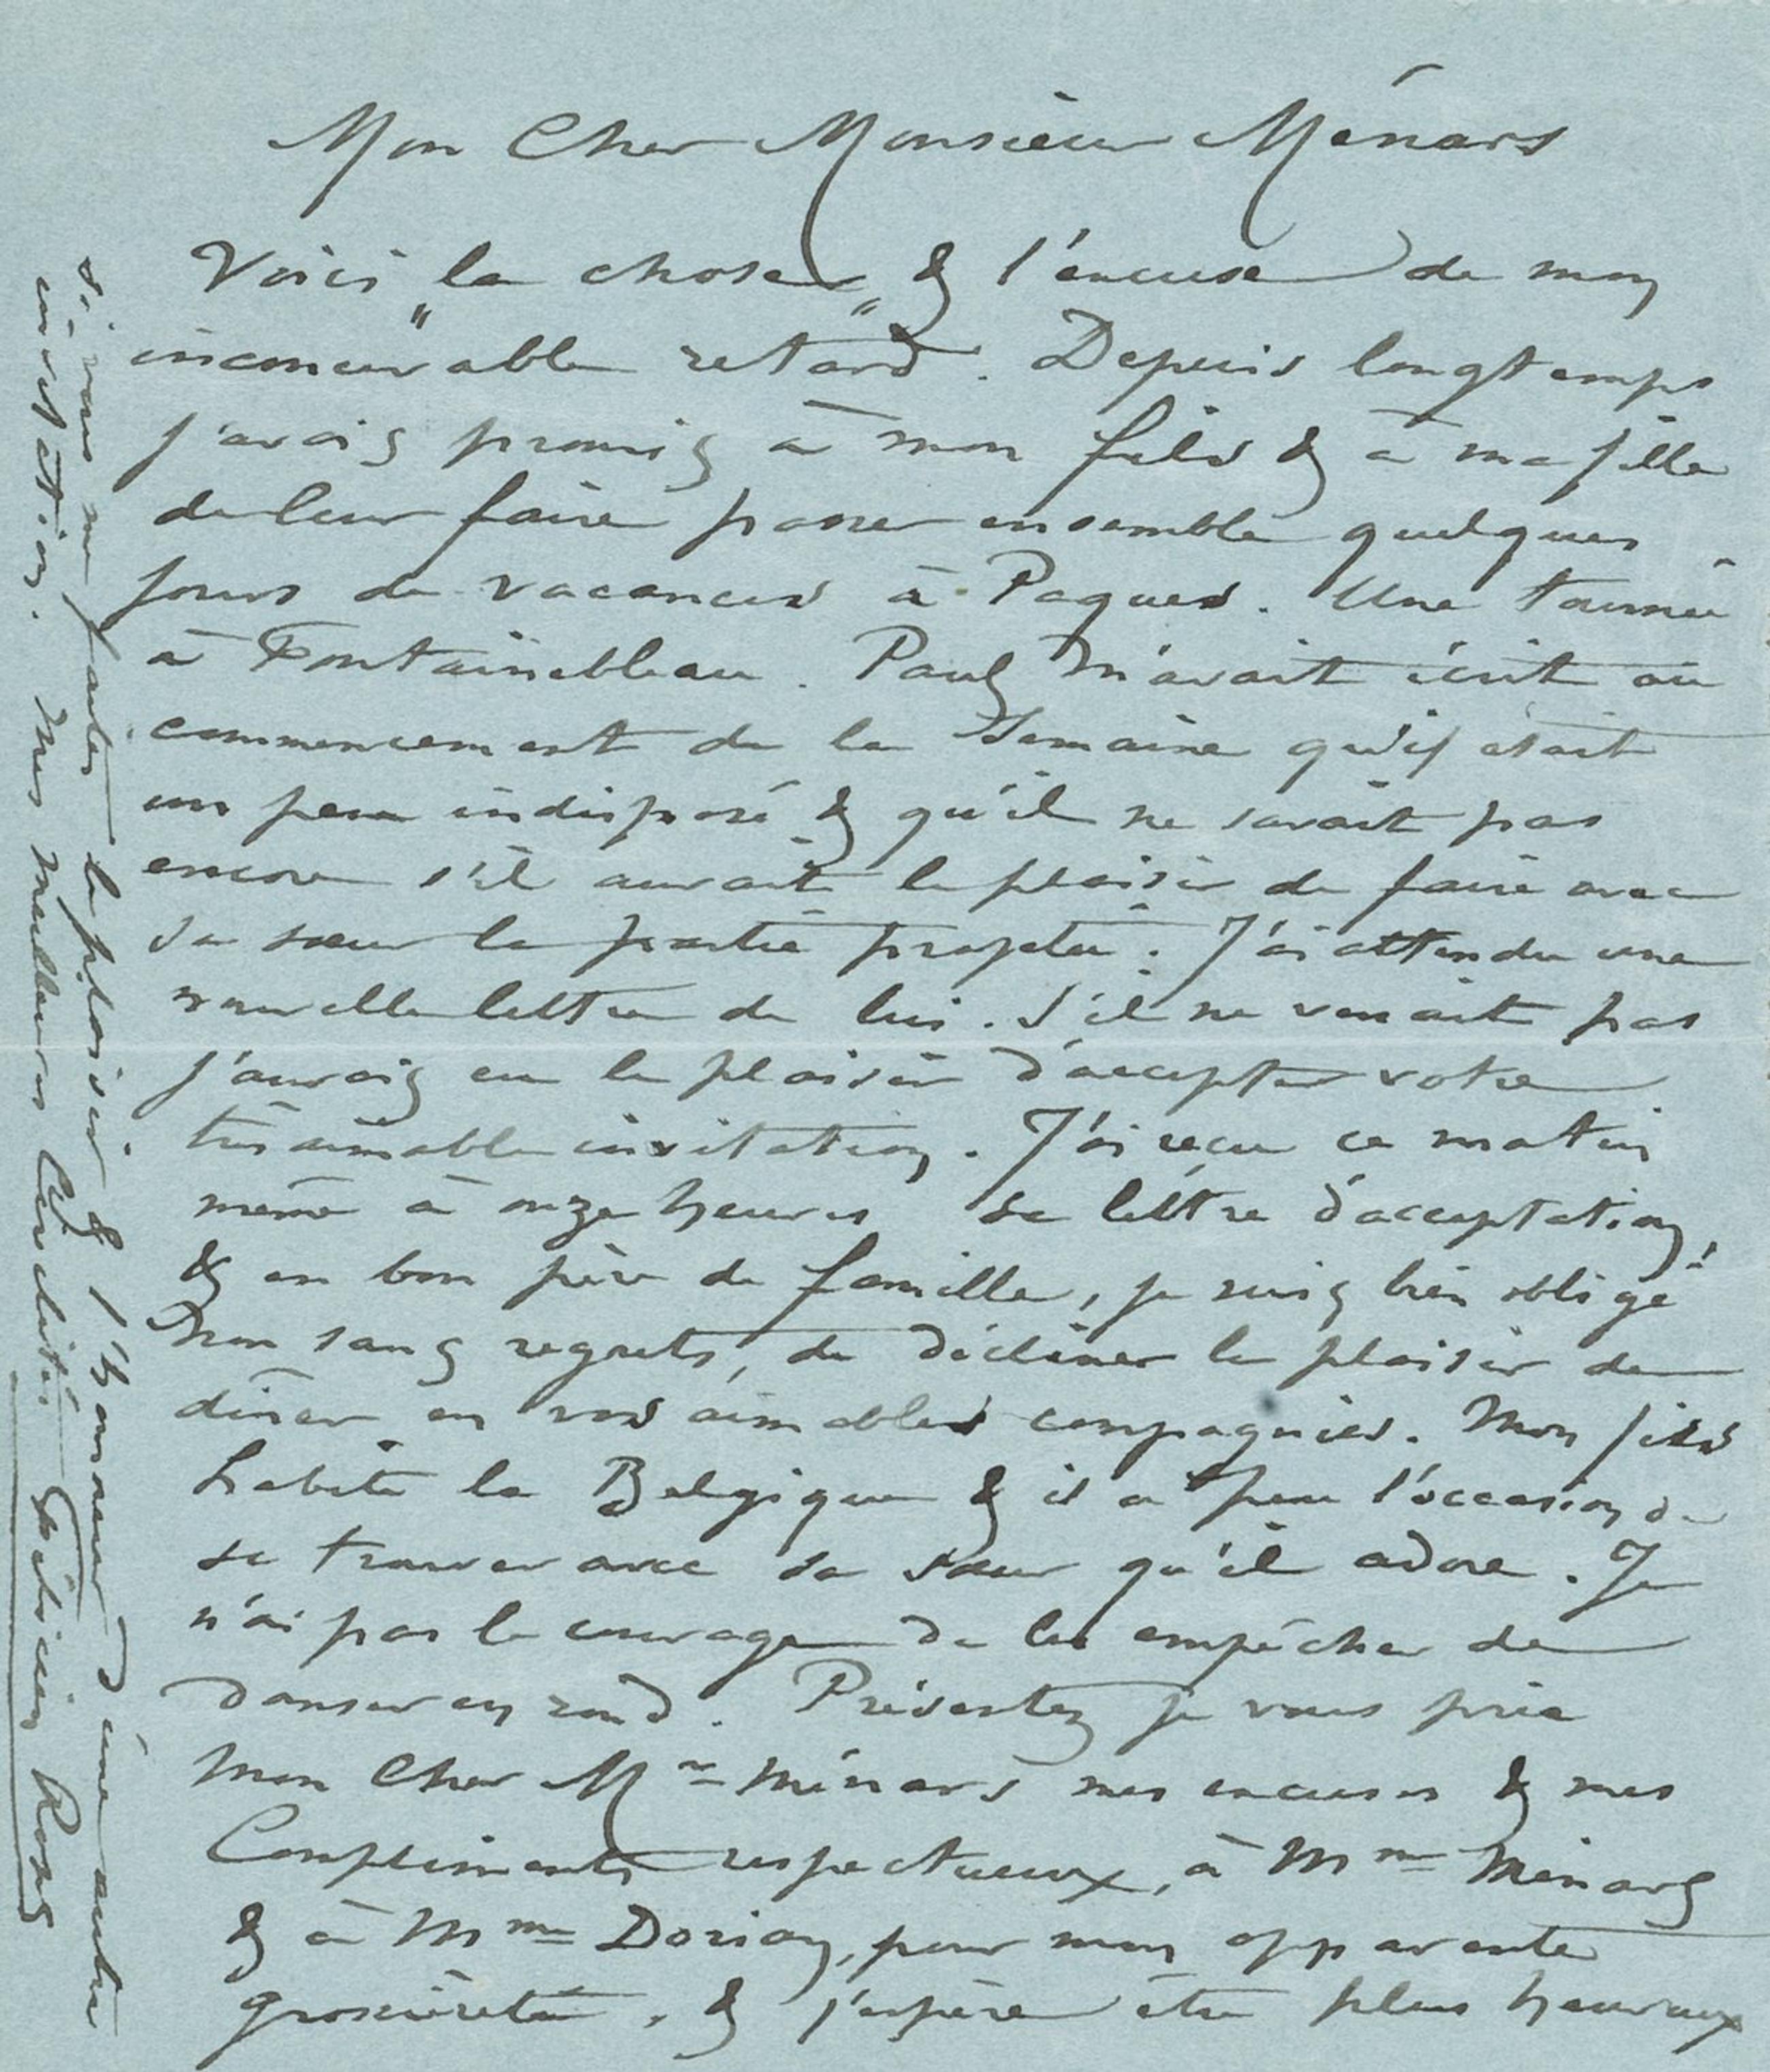 Mon Cher Monsieur Ménars
Voici "la chose" & l'excuse de mon
inconcevable retard. Depuis longtemps
j'avais promis à mon fils & à ma fille
de leur faire passer ensemble quelques
jours de vacances à Paques. Une tournée
à Fontainebleau. Paul m'avait écrit au
commencement de la Semaine qu'il était
un peu indisposé & qu'il ne savait pas
encore s'il aurait le plaisir de faire avec
sa sœur la partie projetée. J'ai attendu une
nouvelle lettre de lui. S'il ne venait pas
j'aurais eu le plaisir d'accepter votre
très aimable invitation. J'ai reçu ce matin
même à onze heures sa lettre d'acceptation,
& en bon père de famille, je suis bien obligé
non sans regrets, de décliner le plaisir de
dîner en vos aimables compagnies. Mon fils
habite la Belgique & il a peu l'occasion de
se trouver avec sa sœur qu'il adore. Je
n'ai pas le courage de les empêcher de
danser en rond. Présentez je vous prie
mon Cher Mr Ménars mes excuses & mes
Compliments respectueux, à Mme Ménars
& à Mme Dorian, pour mon apparente
grossièreté, & j'espère être plus heureux
si vous me faites le plaisir & l'honneur d'une autre
invitation. Mes meilleures Cordialités Félicien Rops